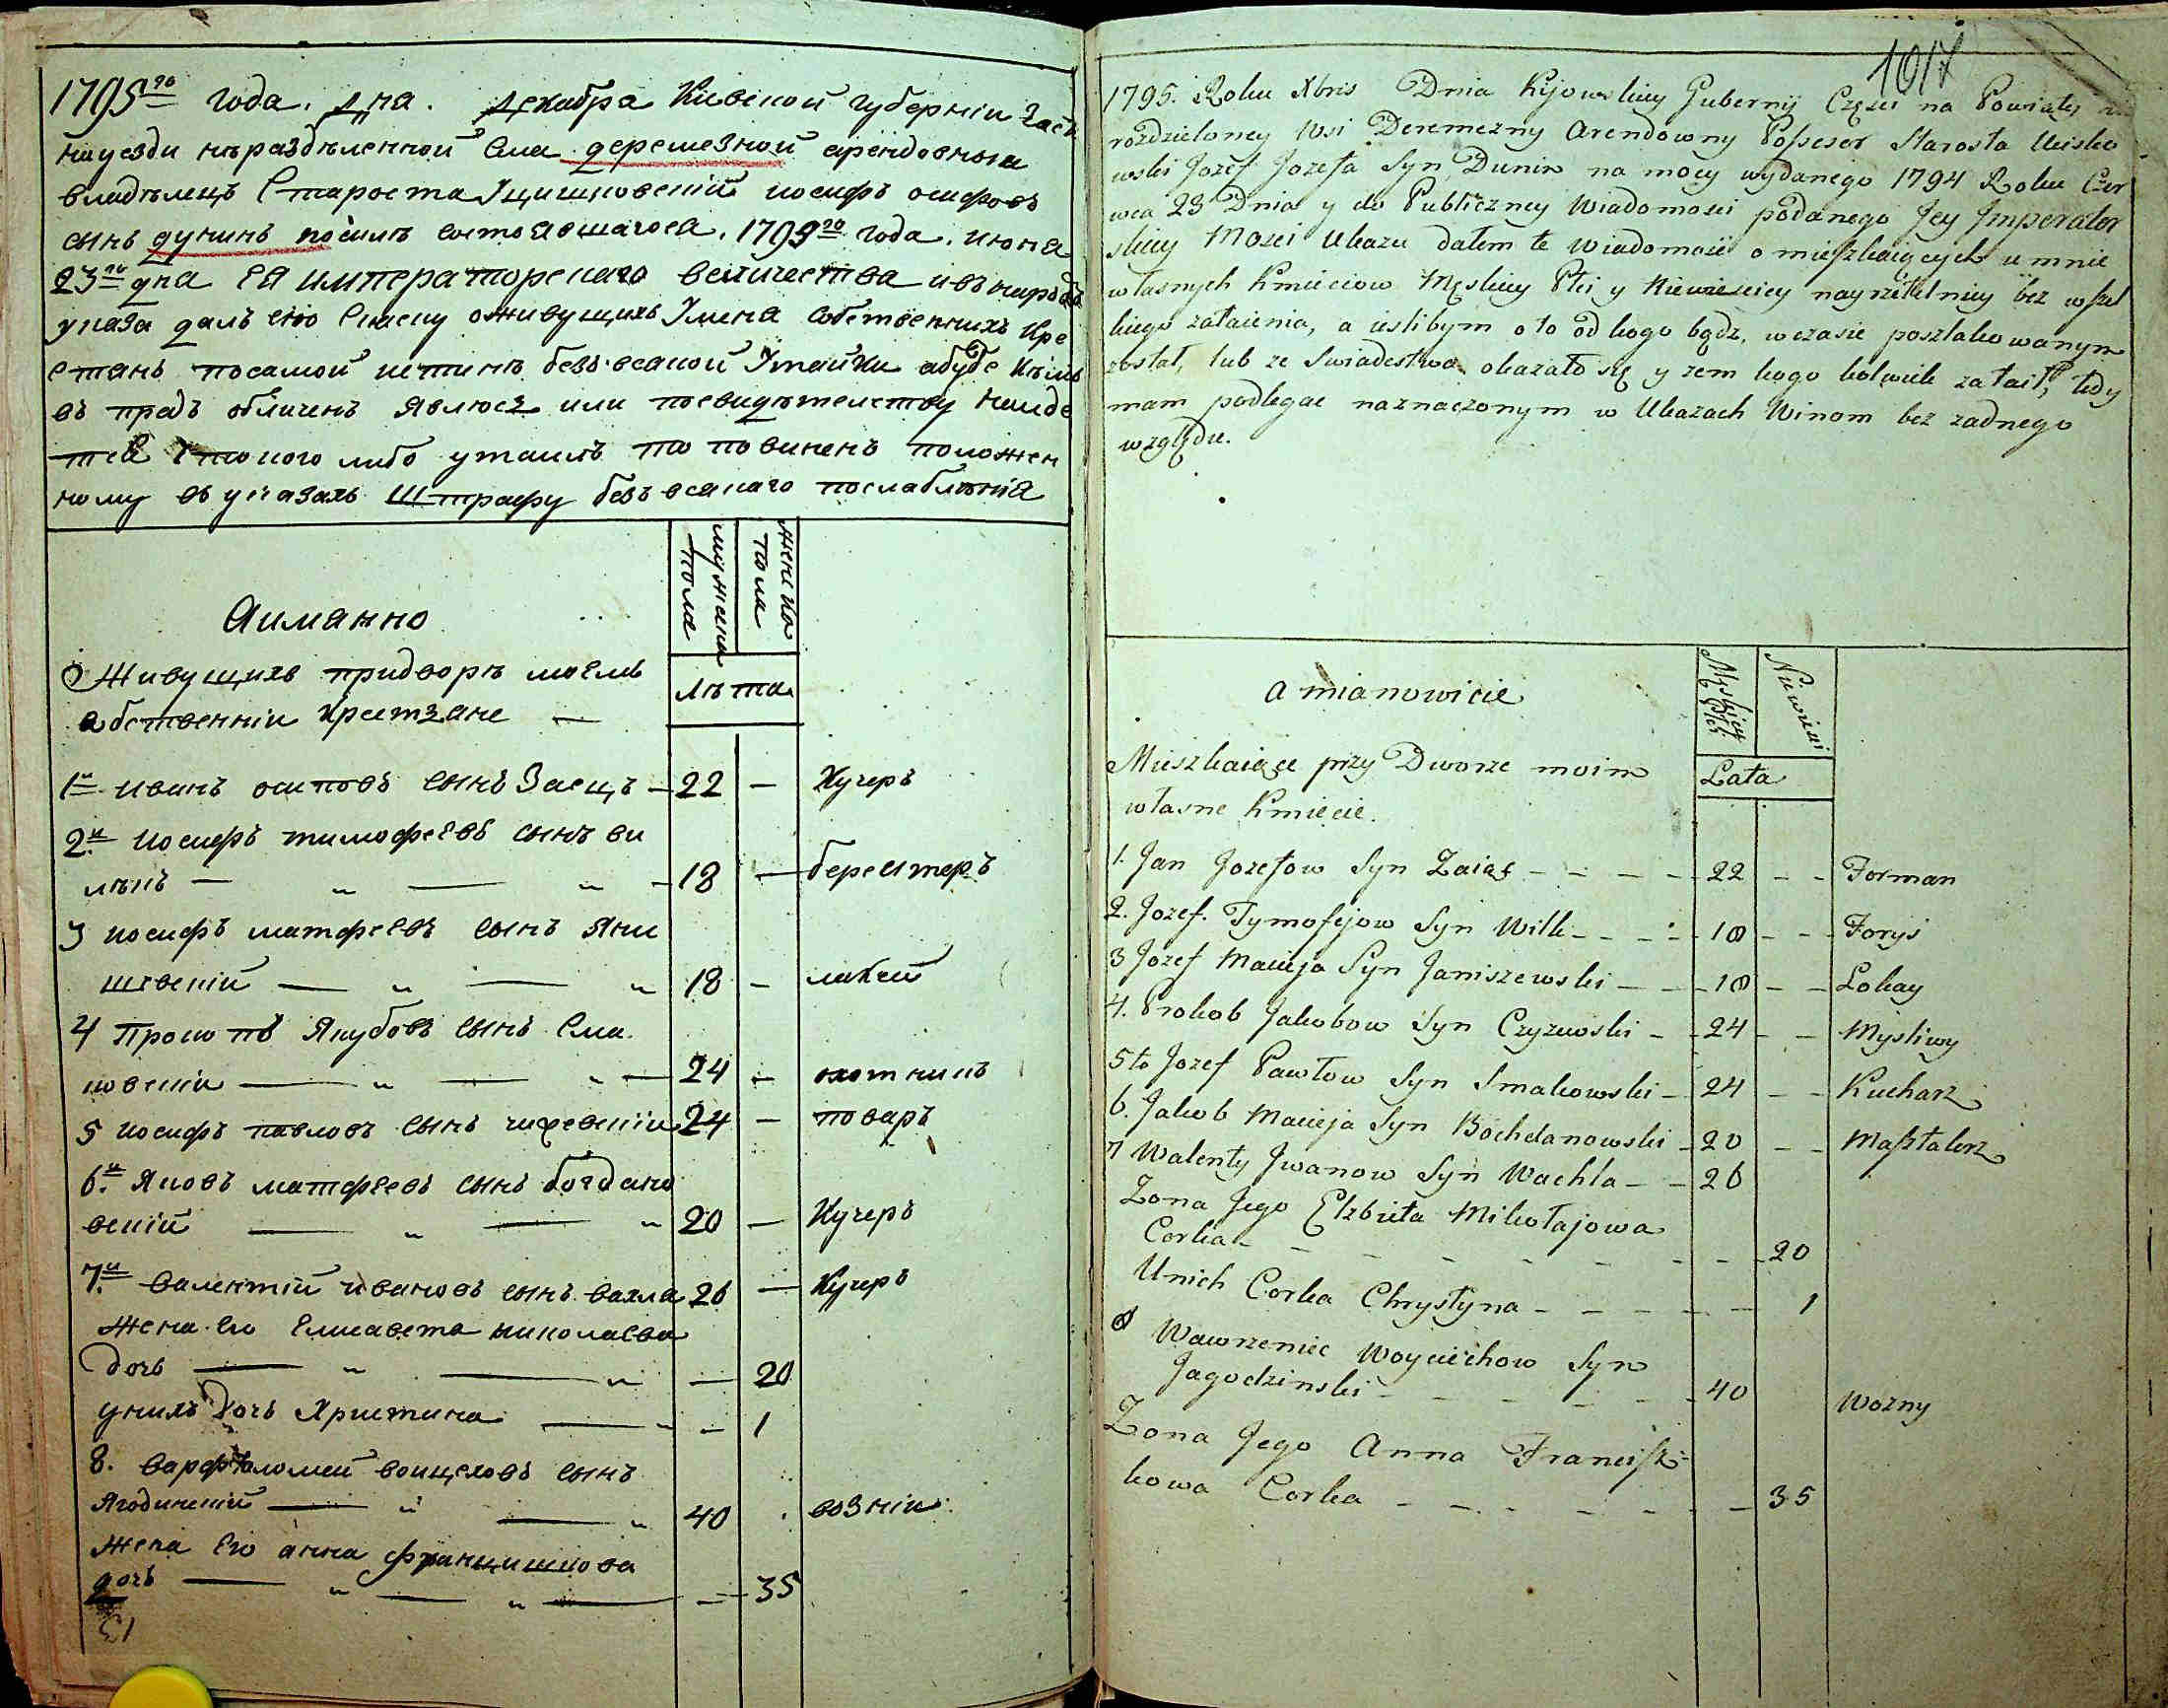 1795го года. дна. декабря Киевской губернiи част
на уезди нъраздъленной села деремезной арендовныи
владълецъ Староста Iосифъ осифовъ
сынъ дунинъ посилъ состоявшагося. 1794го года. июна
23го дна Ея императорскаго величества ивънародъ
указа далъ сию скаску оживущихъ Умена собственныхъ кре
стянъ посамой истинъ безъ всакой Утайки абуде къмъ
въ предъ обличенъ явлюся или посвидътелству найде
тся что кого либо утаилъ то повиненъ положен
ному въ указахъ штрафу безъ всакаго послаблънiя
Аимянно
мужеска пола
женска пола
Живущихъ придворъ моемъ
собственнiи крестяне —
лъта
1й иванъ осиповъ сынъ Заецъ — 22 — Кучеръ
2й иосифъ тимофеевъ сынъ ви
лкъ — " — " — 18 — береитеръ
3 иосифъ матфеевъ сынъ яни
шевскiй — " — " 18 — лакей
4 Прокопъ якубовъ сынъ сма
ковскiи — " — " — 24 — охотникъ
5 иосифъ павловъ сынъ чижевскiи 24 — поваръ
6й Яковъ матфеевъ сынъ богдано
вскiй — " — " 20 — Кучеръ
7й валентiй ивановъ сынъ вахла 26 — Кучеръ
жена его Елисавета николаева
дочь — " — " — 20
унихъ дочь Христина — " — 1
8. варфоломей воицеховъ сынъ
Ягодинскiй — " — " 40 . вознiи
жена его анна францишкова
дочь — " — " — — 35
1017
1795. Roku Xbris Dnia Kijowskiey Gubernij Części na Powiaty nie
rozdzieloney Wsi Deremezny Arendowny Possesor Starosta Uisko
wski Jozef Jozefa Syn Dunin na mocy wydanego 1794 Roku Czer
wca 23 Dnia y do Publiczney Wiadomosci podanego Jey Jmperator
skiey Mosci Ukazu dałem te Wiadomość o mieszkaiących u mnie
własnych Kmieciow Męskiey Płci y Niewieściey nayrzetelniey bez wszel
kiego zataienia, a ieslibym o to od kogo bądź, w czasie poszlakowanym
został, lub ze Swiadectwa okazało się y żem kogo kolwiek zataił, tedy
mam podlegac naznaczonym w Ukazach Winom bez żadnego
względu.
a mianowicie
Męskiey Płci
Niewieści
Mieszkaiące przy Dworze moim
własne Kmiecie.
Lata
1. Jan Jozefow Syn Zaiąc - - - - 22 - - Forman
2. Jozef. Tymofejow Syn Wilk - - - - 18 - - Foryś
3 Jozef Macieja Syn Janiszewski - - 18 - - Lokay
4. Prokob Jakobow Syn Czyzewski - - 24 - - Mysliwy
5to Jozef Pawłow Syn Smakowski - 24 - - Kucharz
6. Jakob Macieja Syn Bochdanowski - 20 - - Masztalerz
7 Walenty Jwanow Syn Wachla - - 26
Zona Jego Elzbieta Mikołajowa
Corka - - - - - - - - 20
Unich Corka Chrystyna - - - - - 1
8 Wawrzeniec Woyciechow Syn
Jagodzinski - - - - - 40 Wozny
Zona Jego Anna Francisz-
kowa Corka - - - - - - 35